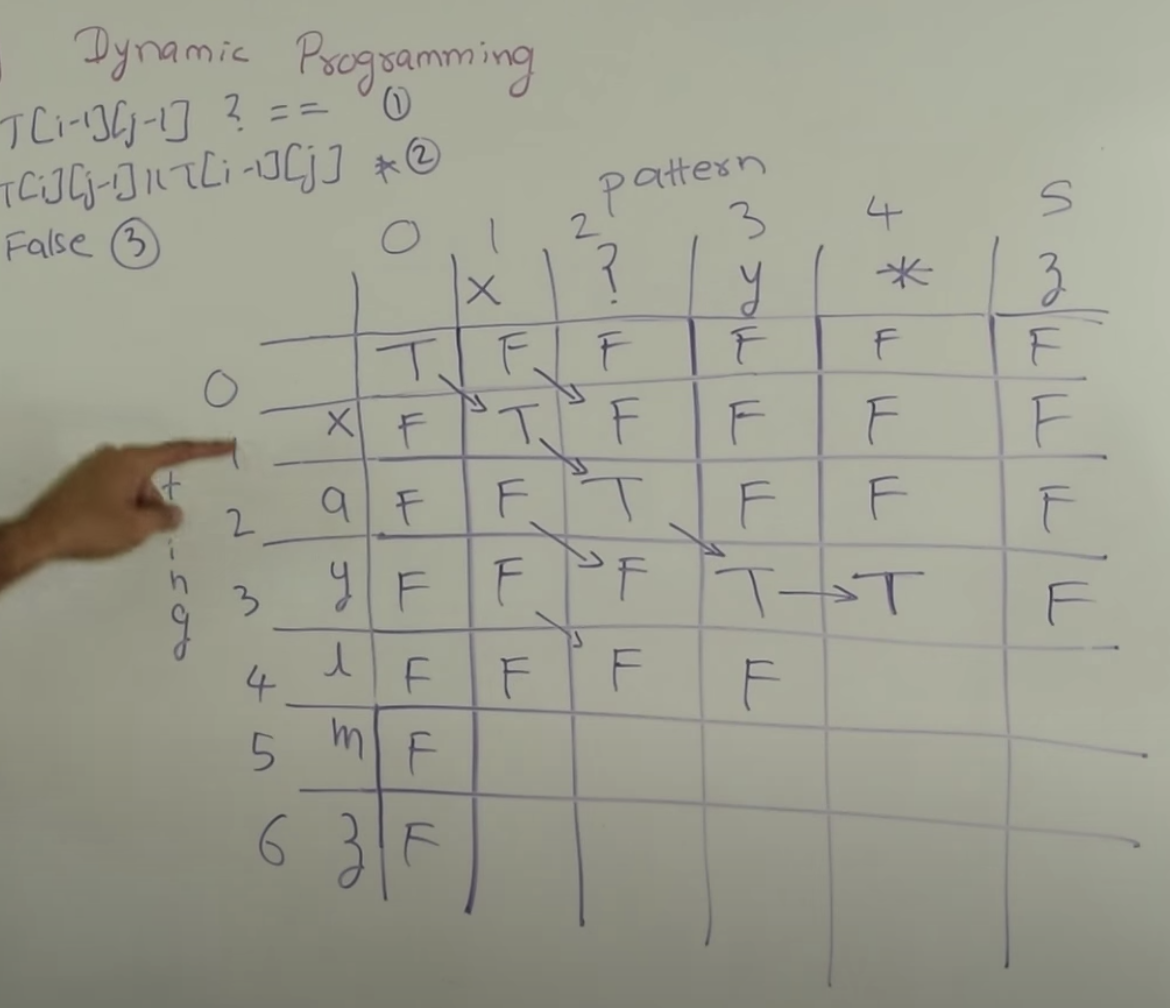 ) Dynamic Programming
T[i-1][j-1] ? == ①
T[i][j-1] || T[i-1][j] * ②
False ③
pattern
0 1 2 3 4 5
x ? y * z
0 T F F F F F
1 x F T F F F F
2 a F F T F F F
3 y F F F T → T F
4 l F F F F
5 m F
6 z F
t
i
n
g